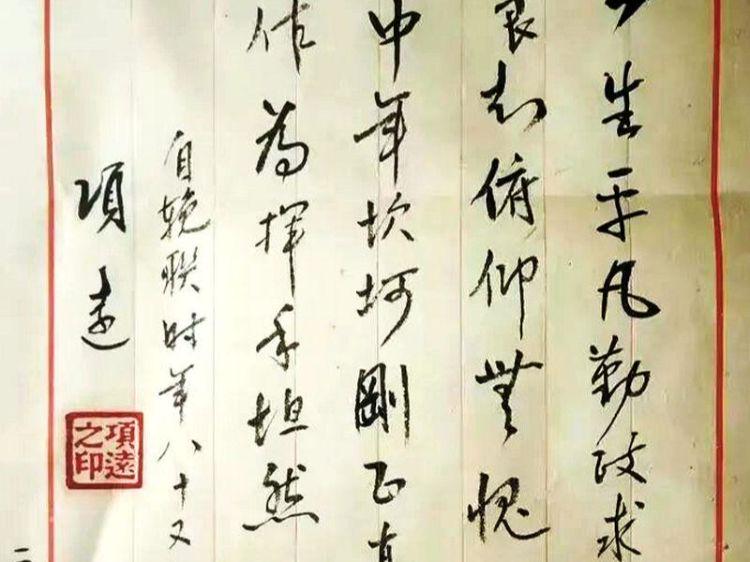 生平凡勤政求
良知俯仰無愧
中年坎坷剛正
作為揮手坦然
自挽聯時年八十又
項遠
項遠之印